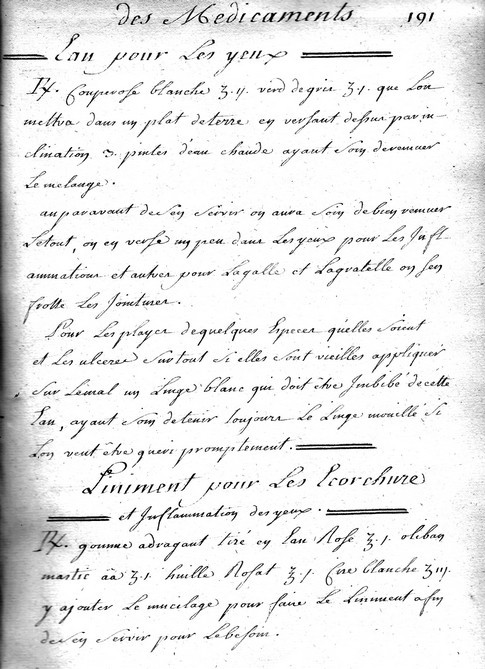 des Medicaments 191
Eau pour Les yeux
℞. Couperose blanche ʒ.ij. verd de gris ʒ.j. que Lon
mettra dans un plat de terre en versant dessus par in-
clination 3. pintes d'eau chaude ayant soin de remuer
Le melange.
auparavant de s'en servir on aura soin de bien remuer
Letout, on en verse un peu dans Les yeux pour Les Infl-
ammations et autres pour Lagalle et Lagratelle on s'en
frotte Les Jointures.
Pour Les playes de quelques Especes qu'elles soient
et Les ulceres surtout si elles sont vieilles appliquer
sur Lemal un Linge blanc qui doit être Jmbibé de cette
Eau, ayant soin de tenir toujours Le Linge mouillé si
Lon veut être gueri promptement.
Liniment pour Les Ecorchure
et Jnflammation des yeux.
℞. gomme adragant tiré en Eau Rose ʒ.j. oliban
mastic āā ʒ.j. huille Rosat ʒ.j. Cire blanche ʒ.iij.
y ajouter Le mucilage pour faire Le Liniment afin
de s'en servir pour Lebesoin.